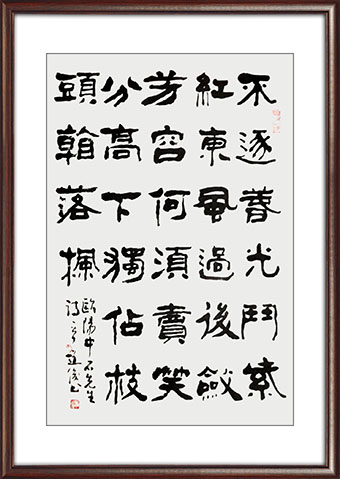 不逐春光鬥紫
紅東風過後斂
芳容何須賣笑
分高下獨佔枝
頭翰落
歐陽中石先生
詩